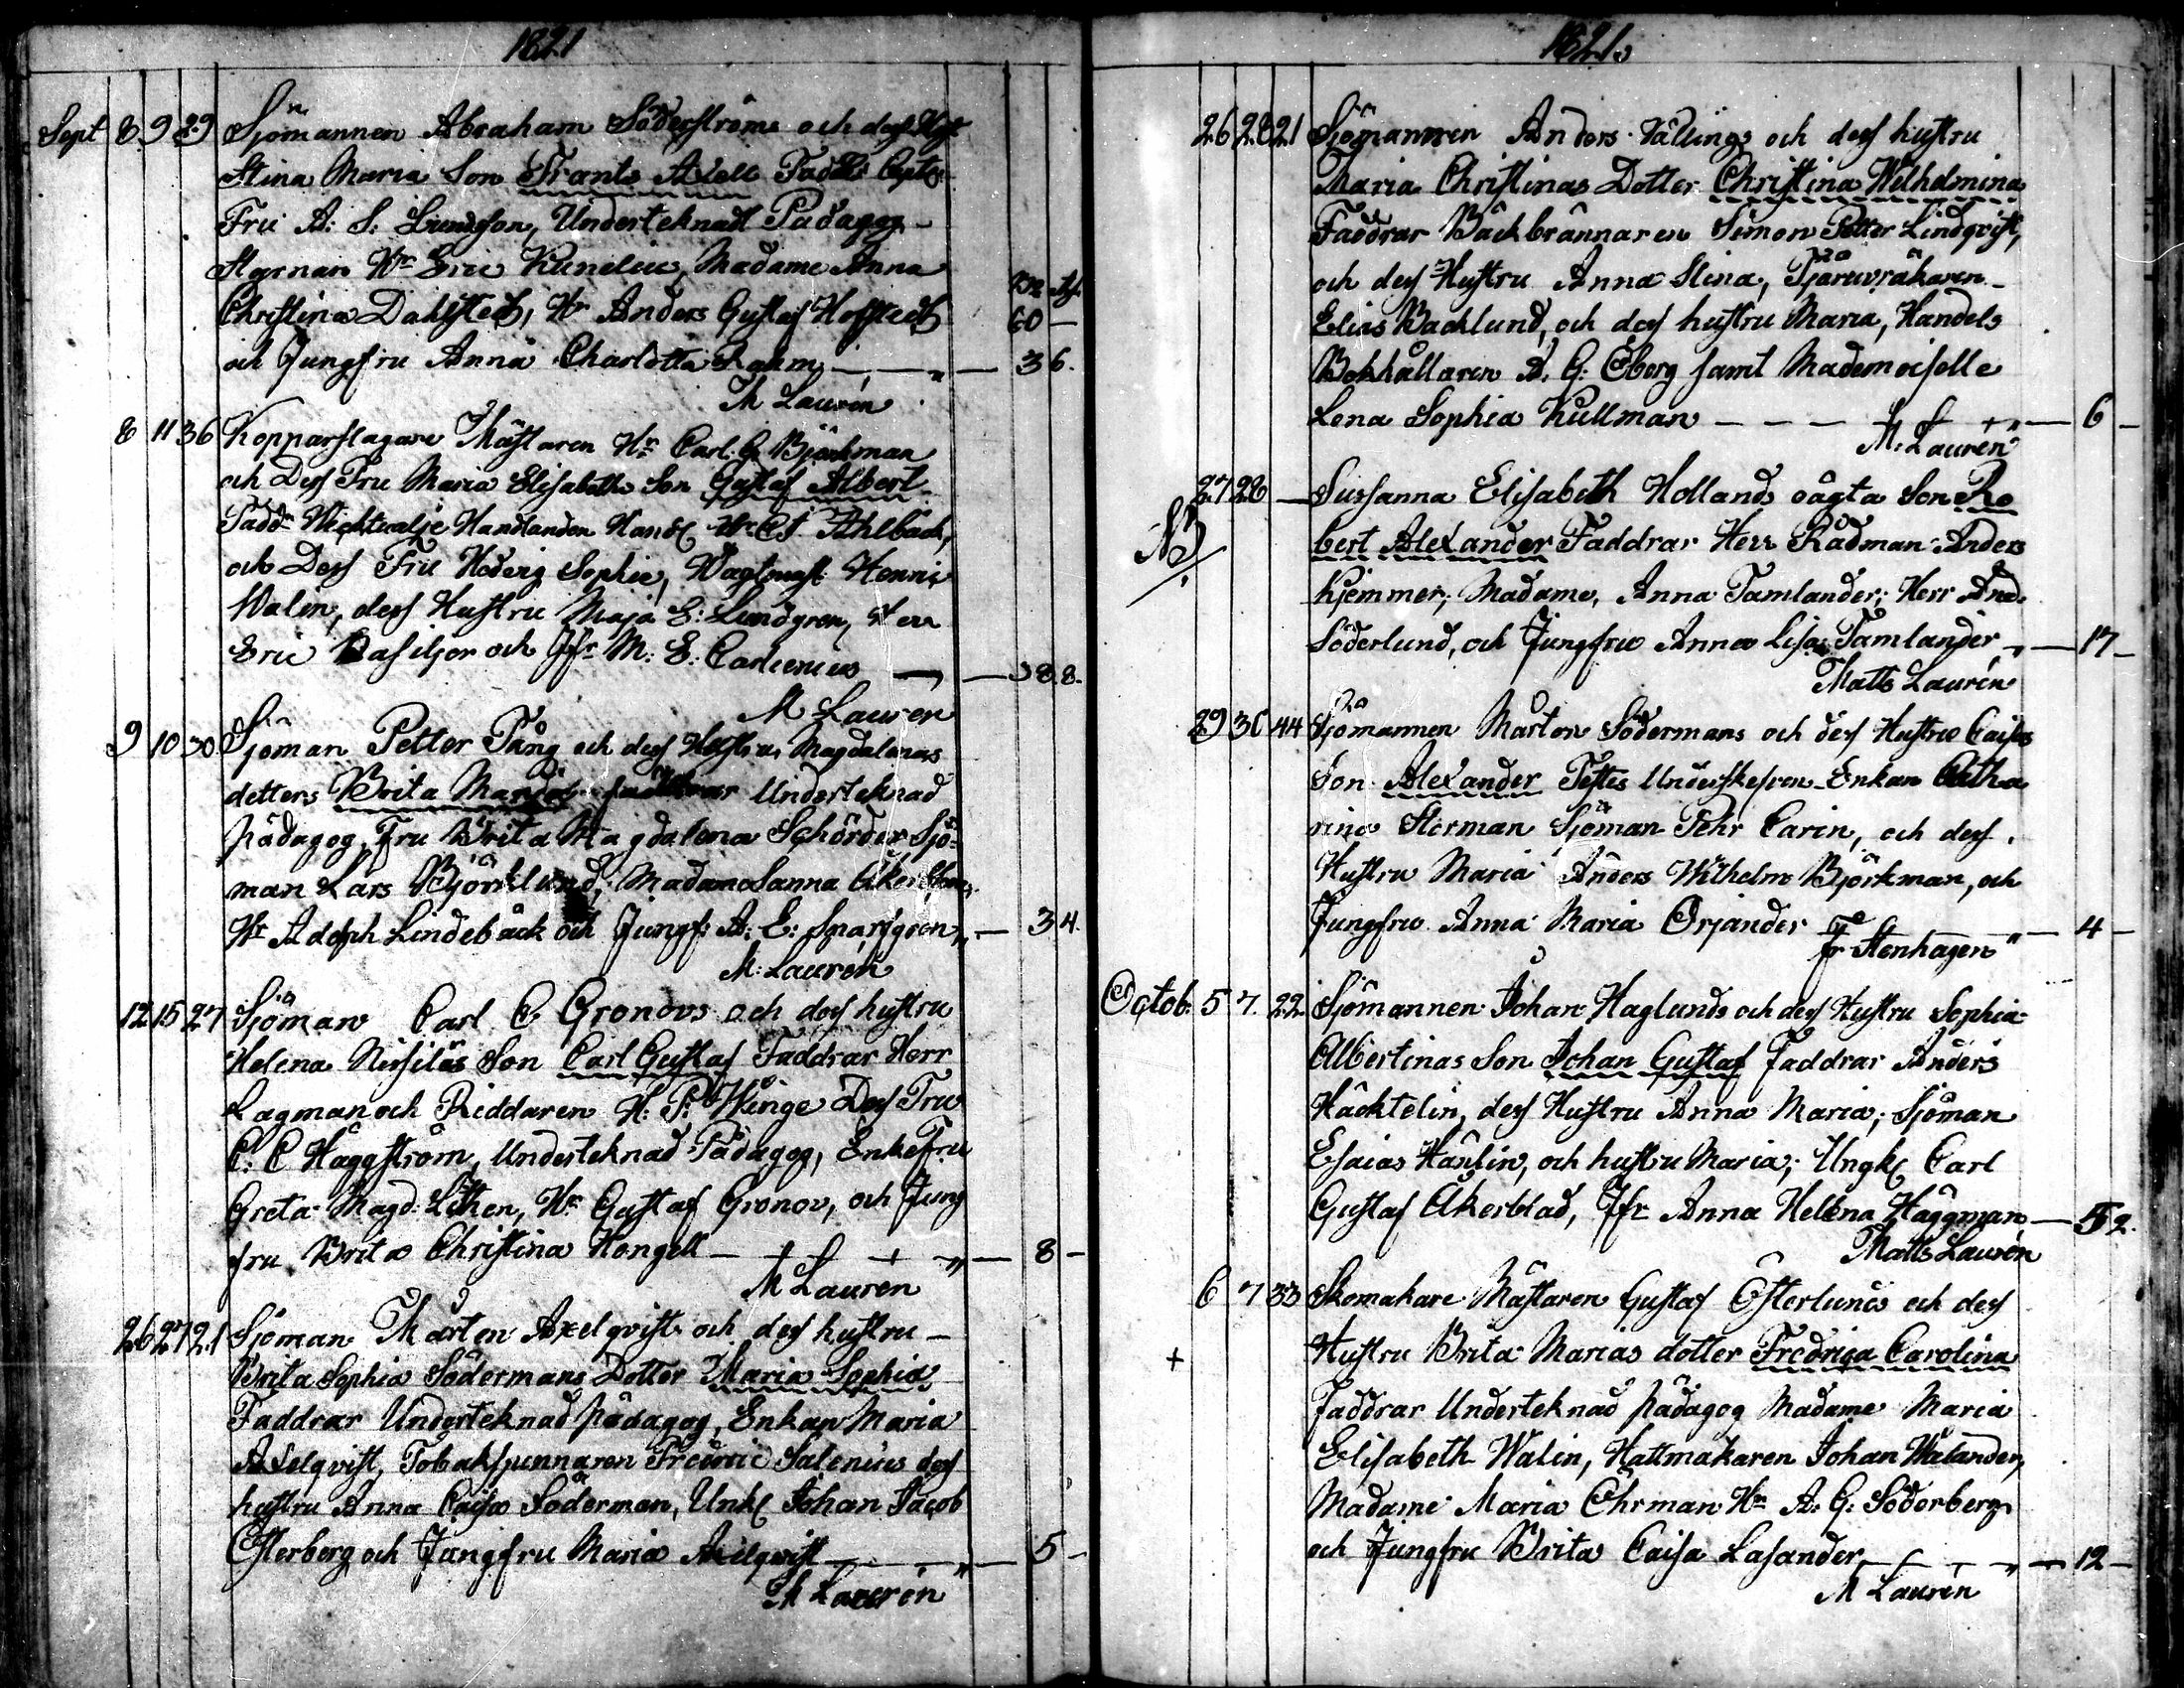 1821
Sept 8 9 29 Sjömannen Abraham Söderströms och dess Hust
Stina Maria Son Frants Axell Fadd: Capten
Fru A: S: Lundson, Underteknad Pædagog
Hr Eric Kunelius, Madame Anna
Christina Dahlstedt, Hr Anders Gustaf Hofstedt 60 –
och Jungfru Anna Charlotta Rahm — 36.
M Laurén
8 11 36 Kopparslagare Mästaren Hr Carl G Björkman
och Dess Fru Maria Elisabeths Son Gustaf Albert
Fadd: Handlanden Hr C J Ahlbäck,
och Dess Fru Hedvig Sophie, Vagtmäst: Henric
Walin, dess Hustru Maja E: Lundgren, Herr
Eric Basiljer och Jfr M: E: Carlenius — 38.8.
M Lauren
9 10 30 Sjöman Petter Tång och dess Hustru Magdalenas
dotters Brita Maria faddrar Underteknad
pädagog, Fru Brita Magdalena Schörder Sjö-
man Lars Björklund, Madame Sanna Åkerblom,
Hr Adolph Lindebäck och Jungf: A: E: Snarfgren „ — 34.
M: Laurén
12 15 27 Sjöman Carl C Gronovs och dess hustru
Helena Nissiläs Son Carl Gustaf Faddrar Herr
Lagman och Riddaren H: P: Winge Dess Fru
C: C Häggström, Underteknad Pädagog, Enkefru
Greta Magd: Lithen, Hr Gustaf Gronov, och Jung
fru Brita Christina Hongell — „ — 8 –
M Lauren
26 27 21 Sjöman Mårten Axelqvist och dess hustru –
Brita Sophia Södermans Dotter Maria Sophia
Faddrar Underteknad pädagog, Enkan Maria
Axelqvist, Tobakspinnaren Fredric Salenius dess
hustru Anna Caisa Söderman, Unkl Johan Jacob
Österberg och Jungfru Maria Axelqvist — „ — 5 –
M Laurén
1821.
26 28 21 Sjömannen Anders Vällings och dess hustru
Maria Christinas Dotter Christina Wilhelmina
Faddrar Bäckbrännaren Simon Petter Lindqvist,
och dess Hustru Anna Stina, Tjäruvräkaren
Elias Backlund, och dess hustru Maria, Handels
Bokhållaren A. G: Öberg samt Mademoiselle
Lena Sophia Kullman — — — „ — 6 –
M: Lauren
27 28 — Sussanna Elisabeth Hollands oägta Son Ro
NB bert Alexander Faddrar Herr Rådman Anders
Kjemmer; Madame, Anna Tamlander; Herr And.
Söderlund, och Jungfru Anna Lisa Tamlander „ — 17 –
Matts Laurén
29 30 44 Sjömannen Mårten Södermans och dess Hustru Caisas
Son Alexander Testes Enkan Catha
rina Storman Sjöman Pehr Carin, och dess
Hustru Maria Anders Wilhelm Björkman, och
Jungfru Anna Maria Örjander — 4 –
Fr Stenhagen
Octob: 5 7. 22 Sjömannen Johan Haglunds och dess Hustru Sophia
Albertinas Son Johan Gustaf Faddrar Anders
Häcktelin, dess Hustru Anna Maria; Sjöman
Esaias Häntin, och hustru Maria; Ungk Carl
Gustaf Åkerblad, Jfr Anna Helena Häggman — 52.
Matts Laurén
6 7 33 Skomakare Mästaren Gustaf Österlunds och dess
+ Hustru Brita Marias dotter Fredrica Carolina
Faddrar Underteknad pädagog Madame Maria
Elisabeth Walin, Hattmakaren Johan Welander,
Madame Maria Öhrman Hr A. G: Söderberg
och Jungfru Brita Caisa Lasander — „ — 12 –
M Laurén